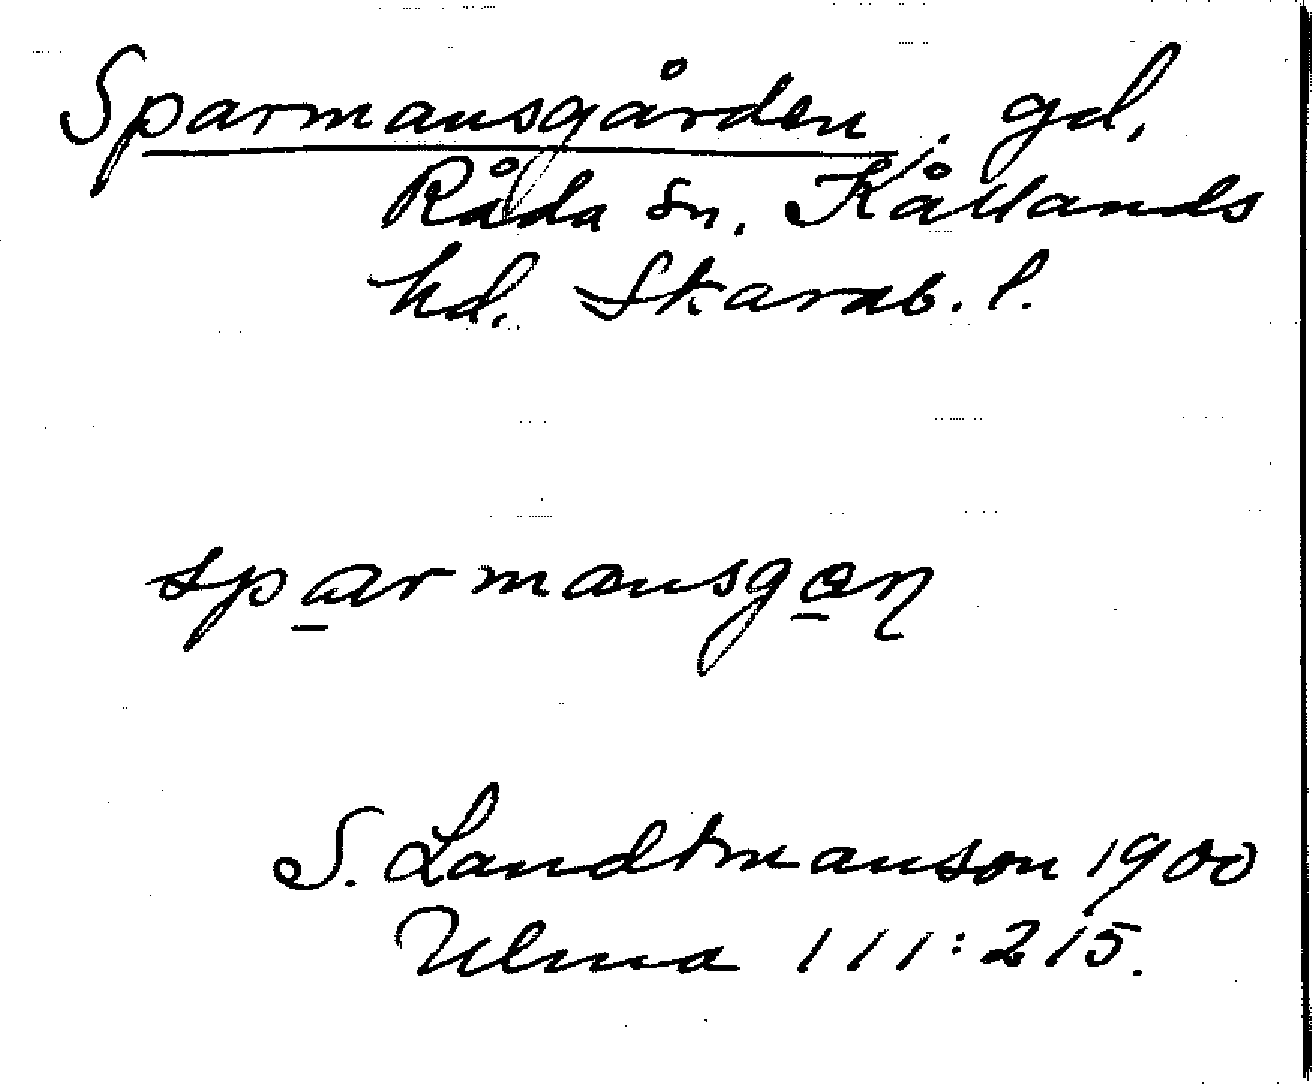 Sparmansgården, gd.
Råda sn, Kållands
hd. Skarab. l.
sparmansgan
S. Landtmanson 1900
Ulma 111:215.